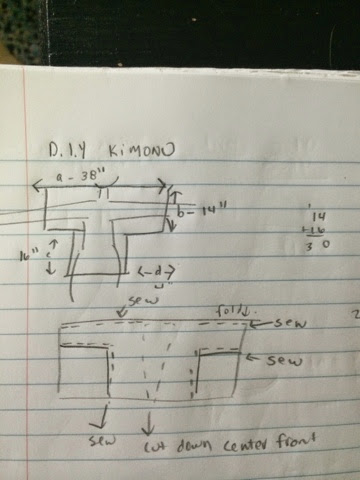 D.I.Y KiMONO
a - 38"
b - 14"
14
+16
30
16" c
d
sew
fold
sew
sew
sew
cut down center front
2